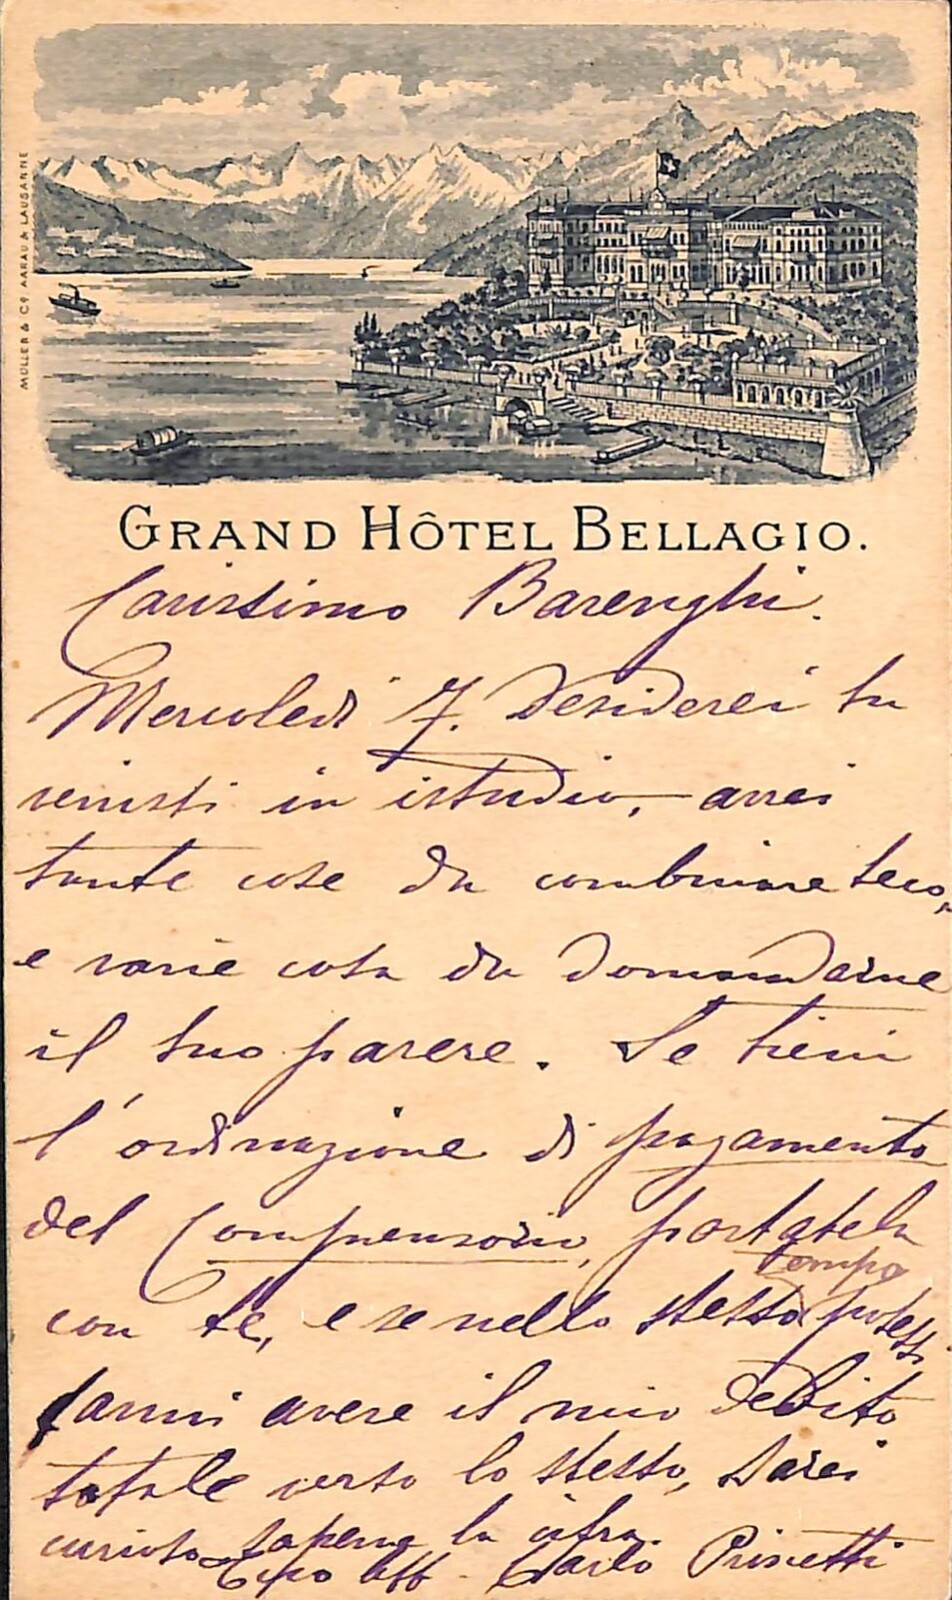 MÜLLER & Cº AARAU & LAUSANNE
GRAND HÔTEL BELLAGIO.
Carissimo Barenghi.
Mercoledì 7. desiderei tu
venisti in istudio, avrei
tante cose da combinare teco,
e varie cose da domandarne
il tuo parere. Se tieni
l'ordinazione di pagamento
del Comprensorio, portatela
tempo
con te, e se nello stesso potessi
farmi avere il mio debito
totale verso lo stesso, sarei
curioso saperne la cifra.
Tuo aff. Carlo Prinetti